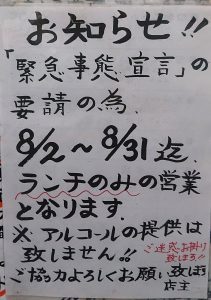 お知らせ!!
「緊急事態宣言」の
要請の為、
8/2～8/31迄、
ランチのみの営業
となります.
※アルコールの提供は
致しません!!
ご迷惑お掛け
致します!!
ご協力よろしくお願い致します
店主